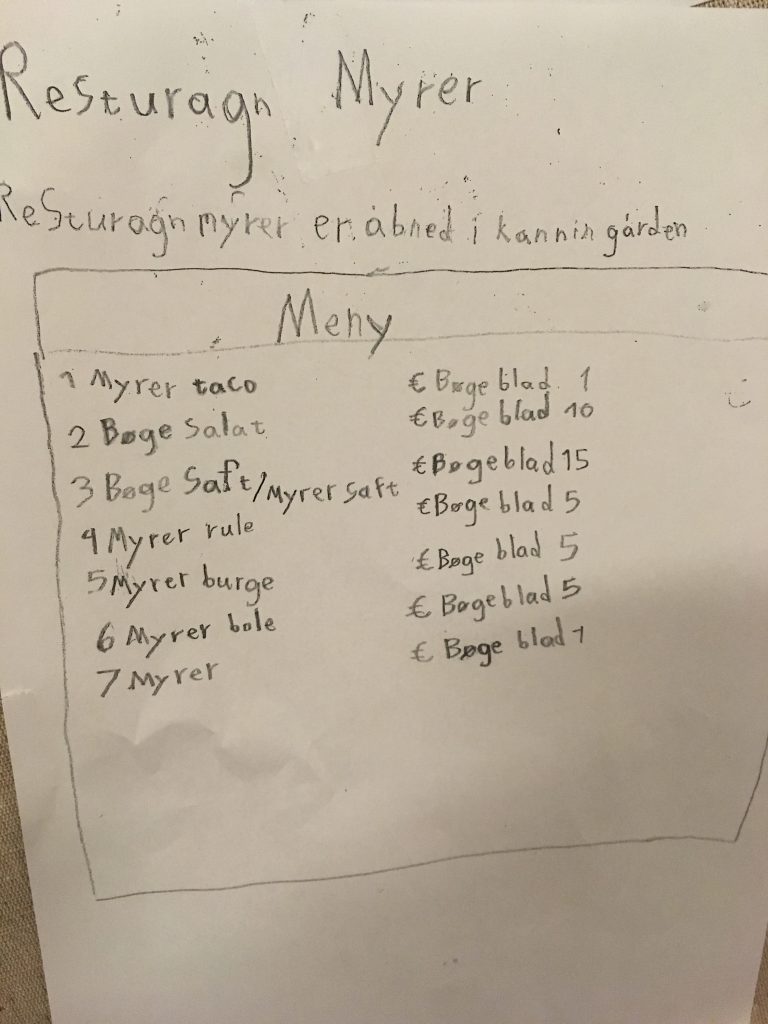 Resturagn Myrer
Resturagn myrer er åbned i kannin gården
Meny
1 Myrer taco € Bøge blad 1
2 Bøge Salat € Bøge blad 10
3 Bøge Saft/Myrer saft € Bøge blad 15
4 Myrer rule € Bøge blad 5
5 Myrer burge € Bøge blad 5
6 Myrer bole € Bøge blad 5
7 Myrer € Bøge blad 1